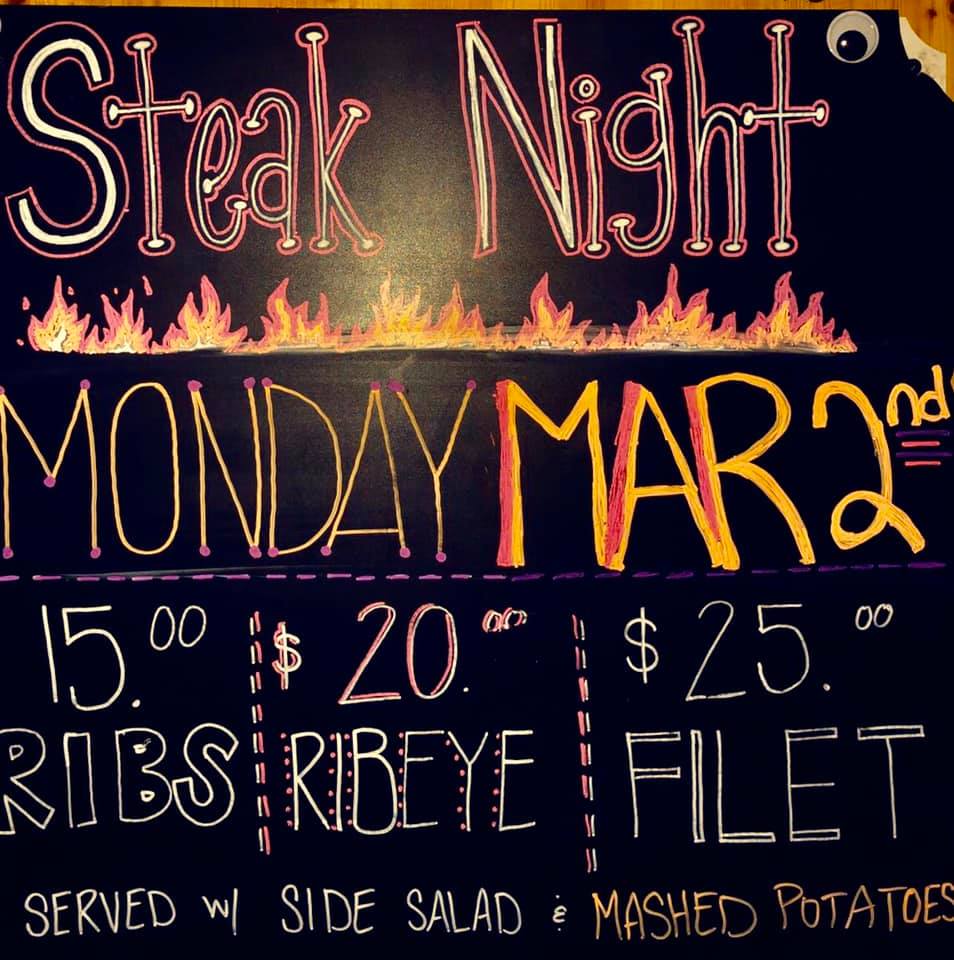 Steak Night
MONDAY MAR 2nd
15.00 $20.00 $25.00
RIBS RIBEYE FILET
SERVED w/ SIDE SALAD & MASHED POTATOES